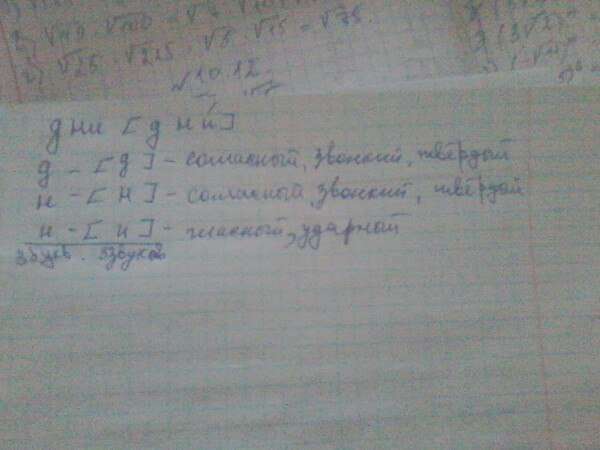 √25 · √225 · √5 · √15 = √75.
√10.12
дни [дни́]
д - [д] - согласный, звонкий, твёрдый
н - [н] - согласный, звонкий, твёрдый
и - [и] - гласный, ударный
3 букв. 3 звуков